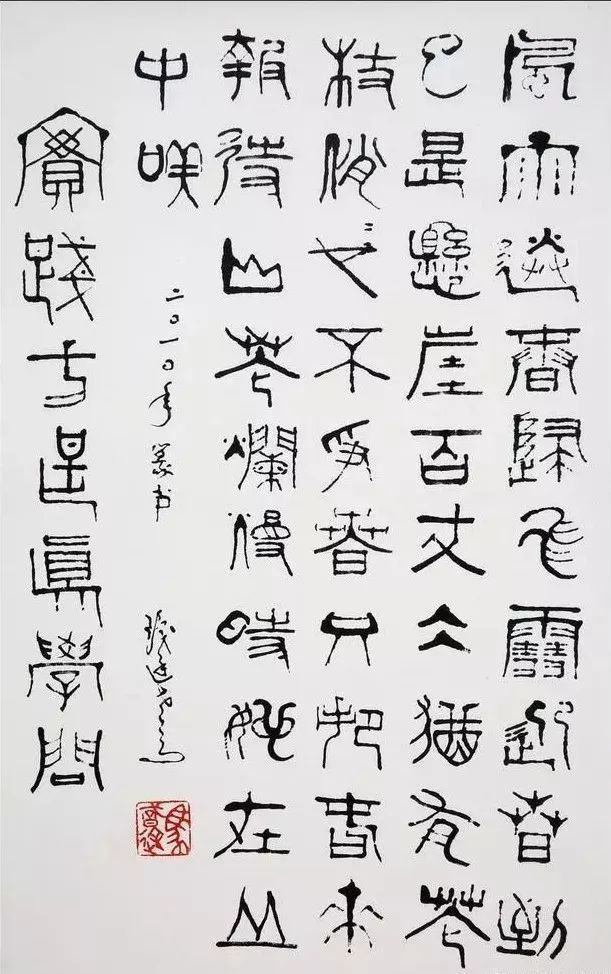 風雨送春歸飛雪迎春到
已是懸崖百丈冰猶有花
枝俏〻也不爭春只把春來
報待山花爛漫時她在丛
中咲
二〇一〇年篆书
實踐方是眞學問